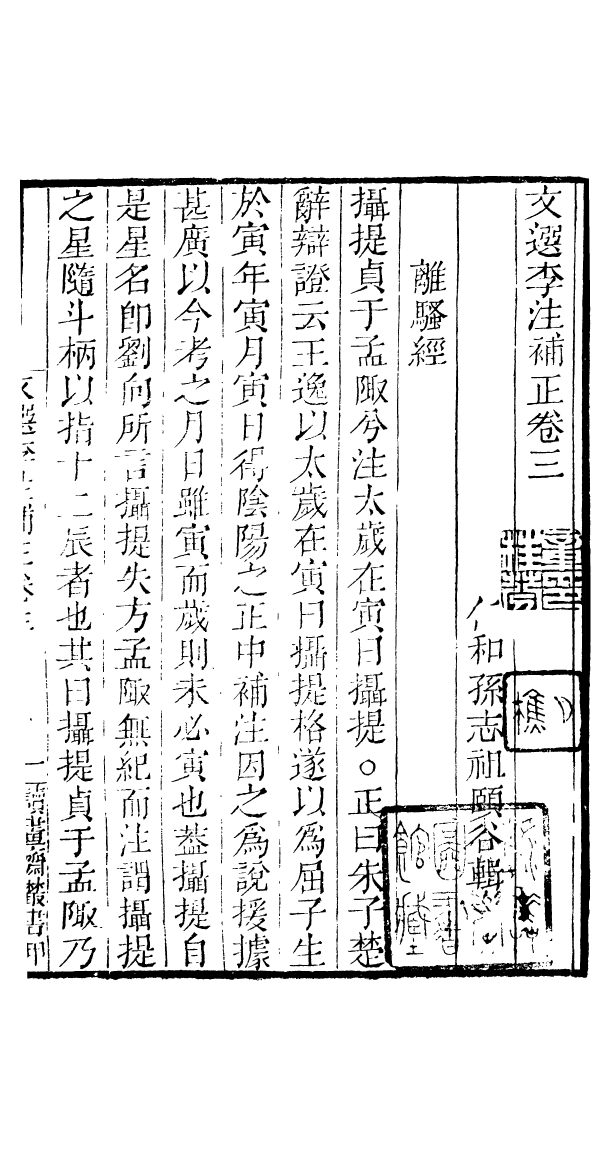 文選李注補正卷三
仁和孫志祖頤谷輯
離騷經
攝提貞于孟陬兮注太歲在寅曰攝提○正曰朱子楚
辭辯證云王逸以太歲在寅曰攝提格遂以爲屈子生
於寅年寅月寅日得陰陽之正中補注因之爲說援據
甚廣以今考之月日雖寅而歲則未必寅也葢攝提自
是星名卽劉向所言攝提失方孟陬無紀而注謂攝提
之星隨斗柄以指十二辰者也其曰攝提貞于孟陬乃
文選李注補正卷三
一
讀畫齋叢書